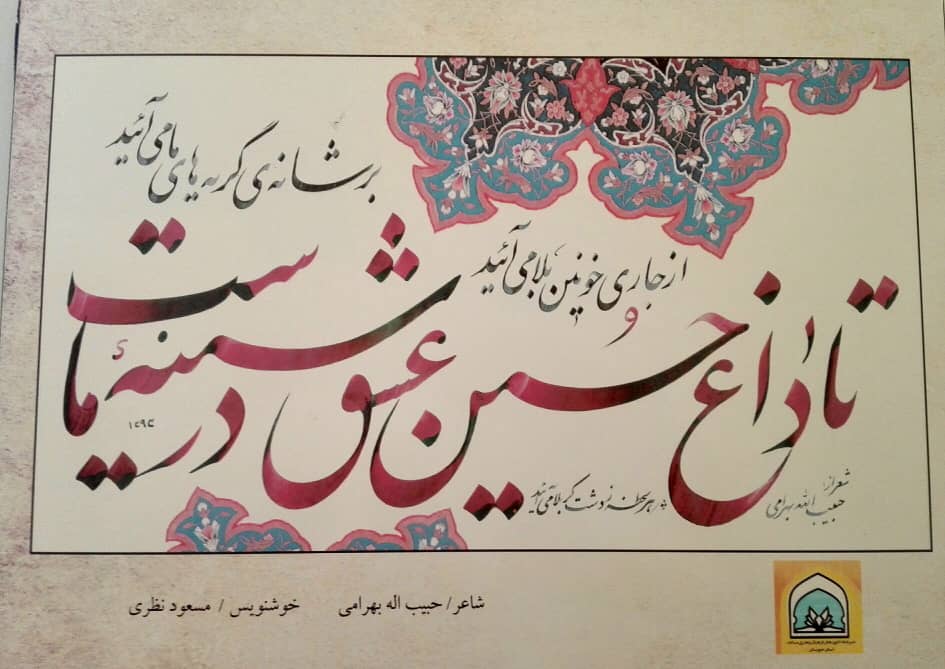 بر شانه‌ی گریه های ما می آئید
از جاری خونین بلا می آئید
تا داغ حسین و عشق در سینه‌ی ماست
هر لحظه ز دشت کربلا می آئید
شعر از:
حبیب الله بهرامی
۱۳۹۳
شاعر / حبیب اله بهرامی خوشنویس / مسعود نظری